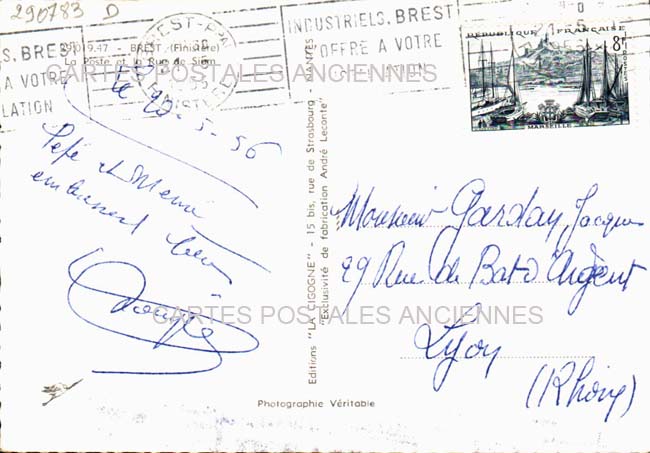 290783 D
INDUSTRIELS. BREST
OFFRE A VOTRE
LS. BREST
A VOTRE
LATION
29.019.47 - BREST (Finistère)
La Poste et la Rue de Siam
REPUBLIQUE FRANÇAISE
8F
MARSEILLE
CARTES POSTALES ANCIENNES
le 20-5-56
Pépé et Mémé
embrassent leur
Monsieur Garday Jacques
29 Rue du Bat d'Argent
Lyon
(Rhône)
Editions "LA CIGOGNE" - 15 bis, rue de Strasbourg - NANTES
"Exclusivité de fabrication André Leconte"
CARTES POSTALES ANCIENNES
Photographie Véritable